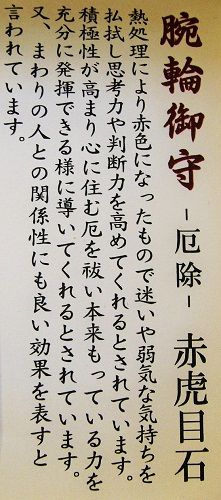 腕輪御守 －厄除－ 赤虎目石
熱処理により赤色になったもので迷いや弱気な気持ちを
払拭し思考力や判断力を高めてくれるとされています。
積極性が高まり心に住む厄を祓い本来もっている力を
充分に発揮できる様に導いてくれるとされています。
又、まわりの人との関係性にも良い効果を表すと
言われています。